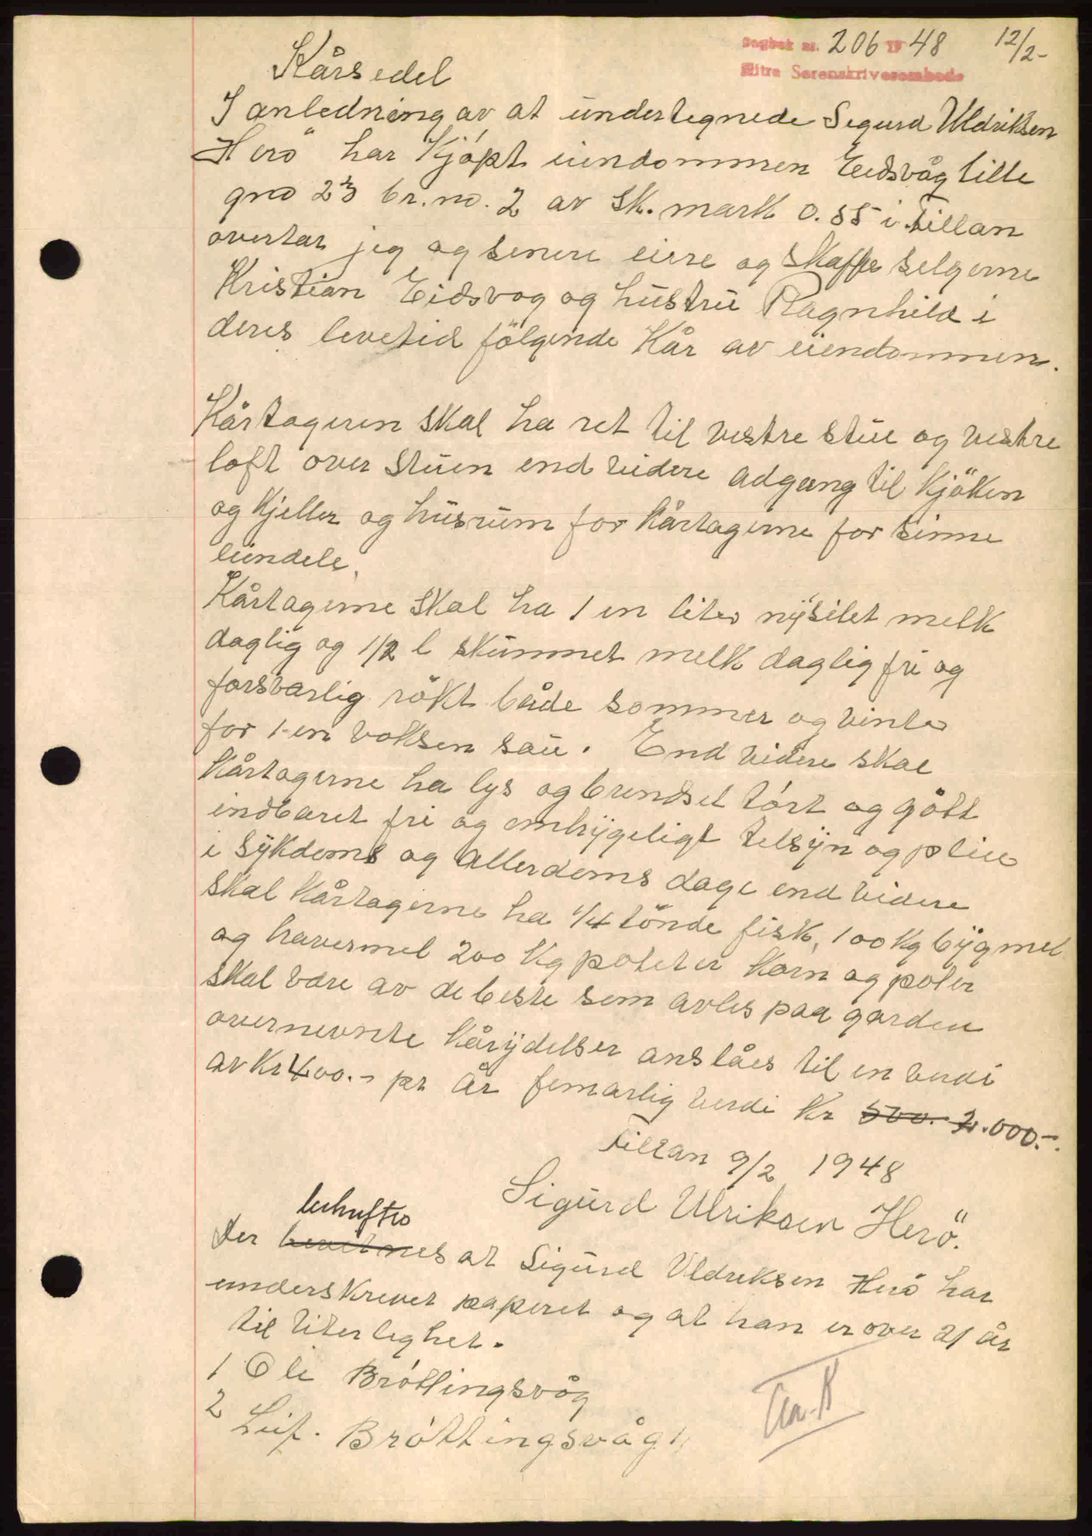 Dagbok nr. 206 19 48 12/2-
Hitra Sorenskriverembede
Kårsedel
I anledning av at undertegnede Sigurd Uldriksen
Herö har Kjöpt eiendommen Eidsvåg lille
gno 23 br.no. 2 av Sk. mark 0.55 i Fillan
overtar jeg og senere eiere og skaffe selgerne
Kristian Eidsvog og hustru Ragnhild i
deres levetid fölgende Kår av eiendommen.
Kårtageren skal ha ret til vestre stue og vestre
loft over stuen end videre adgang til Kjöken
og Kjeller og husrum for Kårtagerne for sinne
eiendele.
Kårtagerne skal ha 1 en liter nysilet melk
daglig og 1/2 l skummet melk daglig fri og
forsvarlig rökt både sommer og vinter
for 1-en voksen sau. End videre skal
Kårtagerne ha lys og brendsel tört og gått
indbaret fri og omhygeligt tilsyn og pleie
i Sykdoms og Allerdoms dage end videre
skal Kårtagerne ha 1/4 tönde fisk, 100 Kg bygmel
og havermel 200 Kg poteter Korn og poter
skal være av de beste som avles paa garden
overnevnte Kårydelser anslåes til en verdi
av Kr 400.- pr år femårlig verdi Kr 500.- 2.000.-.
Fillan 9/2 1948
Sigurd Ulriksen Herö.
bekreftes
Der bevitnes at Sigurd Uldriksen Herö har
underskrevet paperet og at han er over 21 år
til titerlighet.
1 Oli Bröttingsvåg
2 Leif. Bröttingsvåg